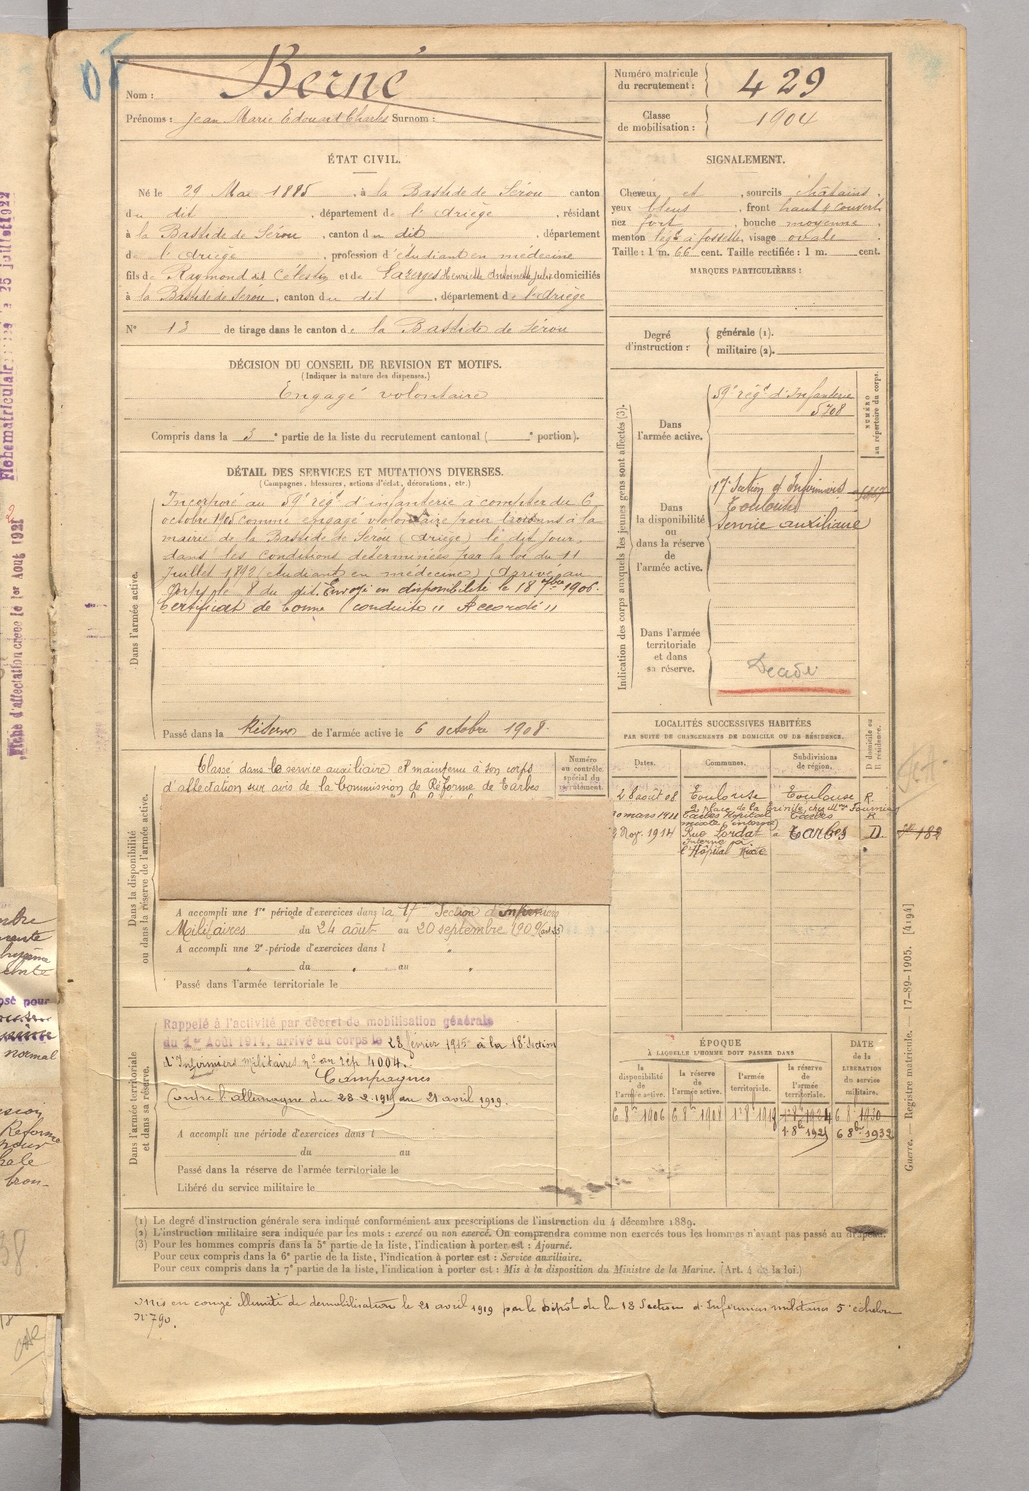 Nom : Berné
Prénoms : Jean Marie Edouard Charles Surnom :
Numéro matricule du recrutement : 429
Classe de mobilisation : 1904
ÉTAT CIVIL.
Né le 29 Mai 1885, à la Bastide de Sérou canton
du dit, département de l'Ariège, résidant
à la Bastide de Sérou, canton du dit, département
de l'Ariège, profession d'étudiant en médecine
fils de Raymond dit Célestin et de Henriette Antoinette Julie domiciliés
à la Bastide de Sérou, canton du dit, département de l'Ariège
N° 13 de tirage dans le canton de la Bastide de Sérou
SIGNALEMENT.
Cheveux et, sourcils châtains,
yeux bleus, front haut & couvert
nez fort, bouche moyenne
menton légt à fossette, visage ovale.
Taille : 1 m. 66 cent. Taille rectifiée : 1 m. cent.
MARQUES PARTICULIÈRES :
Degré d'instruction : générale (1).
militaire (2).
DÉCISION DU CONSEIL DE REVISION ET MOTIFS.
(Indiquer la nature des dispenses.)
Engagé volontaire
Compris dans la 3e partie de la liste du recrutement cantonal ( e portion).
DÉTAIL DES SERVICES ET MUTATIONS DIVERSES.
(Campagnes, blessures, actions d'éclat, décorations, etc.)
Dans l'armée active.
Incorporé au 59e régt d'infanterie à compter du 6
octobre 1905 comme engagé volontaire pour trois ans à la
mairie de la Bastide de Sérou (Ariège) le dit jour,
dans les conditions déterminées par la loi du 11
Juillet 1892 (étudiant en médecine) Arrivé au
corps le 8 du dit. Envoyé en disponibilité le 18 7bre 1906.
Certificat de bonne conduite " Accordé "
Passé dans la Réserve de l'armée active le 6 octobre 1908.
Indication des corps auxquels les jeunes gens sont affectés (3).
NUMÉRO au répertoire du corps.
Dans l'armée active.
59e régt d'Infanterie
5708
Dans la disponibilité ou dans la réserve de l'armée active.
17e Section d'Infirmiers
Toulouse
Service auxiliaire
Dans l'armée territoriale et dans sa réserve.
Décédé
LOCALITÉS SUCCESSIVES HABITÉES
PAR SUITE DE CHANGEMENTS DE DOMICILE OU DE RÉSIDENCE.
Dates. Communes. Subdivisions de région. D domicile ou R résidence.
28 août 08 Toulouse Toulouse R.
2 place de la Trinité, chez Mme
mars 1911 Tarbes Hôpital mixte (interne) Tarbes R
3 Nov. 1914 Rue Lordat à Tarbes D.
interne
l'Hôpital Mixte
Dans la disponibilité ou dans la réserve de l'armée active.
Numéro au contrôle spécial du recrutement.
Classé dans le service auxiliaire et maintenu à son corps
d'affectation sur avis de la Commission de Réforme de Tarbes
A accompli une 1re période d'exercices dans la 17e Section d'Infirmiers
Militaires du 24 août au 20 septembre 1909
A accompli une 2e période d'exercices dans l
du au
Passé dans l'armée territoriale le
Dans l'armée territoriale et dans sa réserve.
Rappelé à l'activité par décret de mobilisation générale
du 1er Août 1914, arrivé au corps le 28 février 1915 à la 18e Section
d'Infirmiers militaires n° au rép. 4004.
Campagnes
Contre l'allemagne du 28-2-1915 au 21 avril 1919.
A accompli une période d'exercices dans l
du au
Passé dans la réserve de l'armée territoriale le
Libéré du service militaire le
ÉPOQUE
À LAQUELLE L'HOMME DOIT PASSER DANS
la disponibilité de l'armée active. la réserve de l'armée active. l'armée territoriale. la réserve de l'armée territoriale.
DATE de la LIBÉRATION du service militaire.
6 8bre 1906 6 8bre 1908 1 8bre 1918 1 8bre 1924 6 8bre 1930
1 8bre 192 6 8bre 1932
(1) Le degré d'instruction générale sera indiqué conformément aux prescriptions de l'instruction du 4 décembre 1889.
(2) L'instruction militaire sera indiquée par les mots : exercé ou non exercé. On comprendra comme non exercés tous les hommes n'ayant pas passé au drapeau.
(3) Pour les hommes compris dans la 5e partie de la liste, l'indication à porter est : Ajourné.
Pour ceux compris dans la 6e partie de la liste, l'indication à porter est : Service auxiliaire.
Pour ceux compris dans la 7e partie de la liste, l'indication à porter est : Mis à la disposition du Ministre de la Marine. (Art. 4 de la loi.)
Guerre. — Registre matricule. — 17-89-1905. [4194]
Mis en congé illimité de démobilisation le 21 avril 1919 par le Dépôt de la 18 Section d'Infirmiers militaires 5e échelon
N° 790.